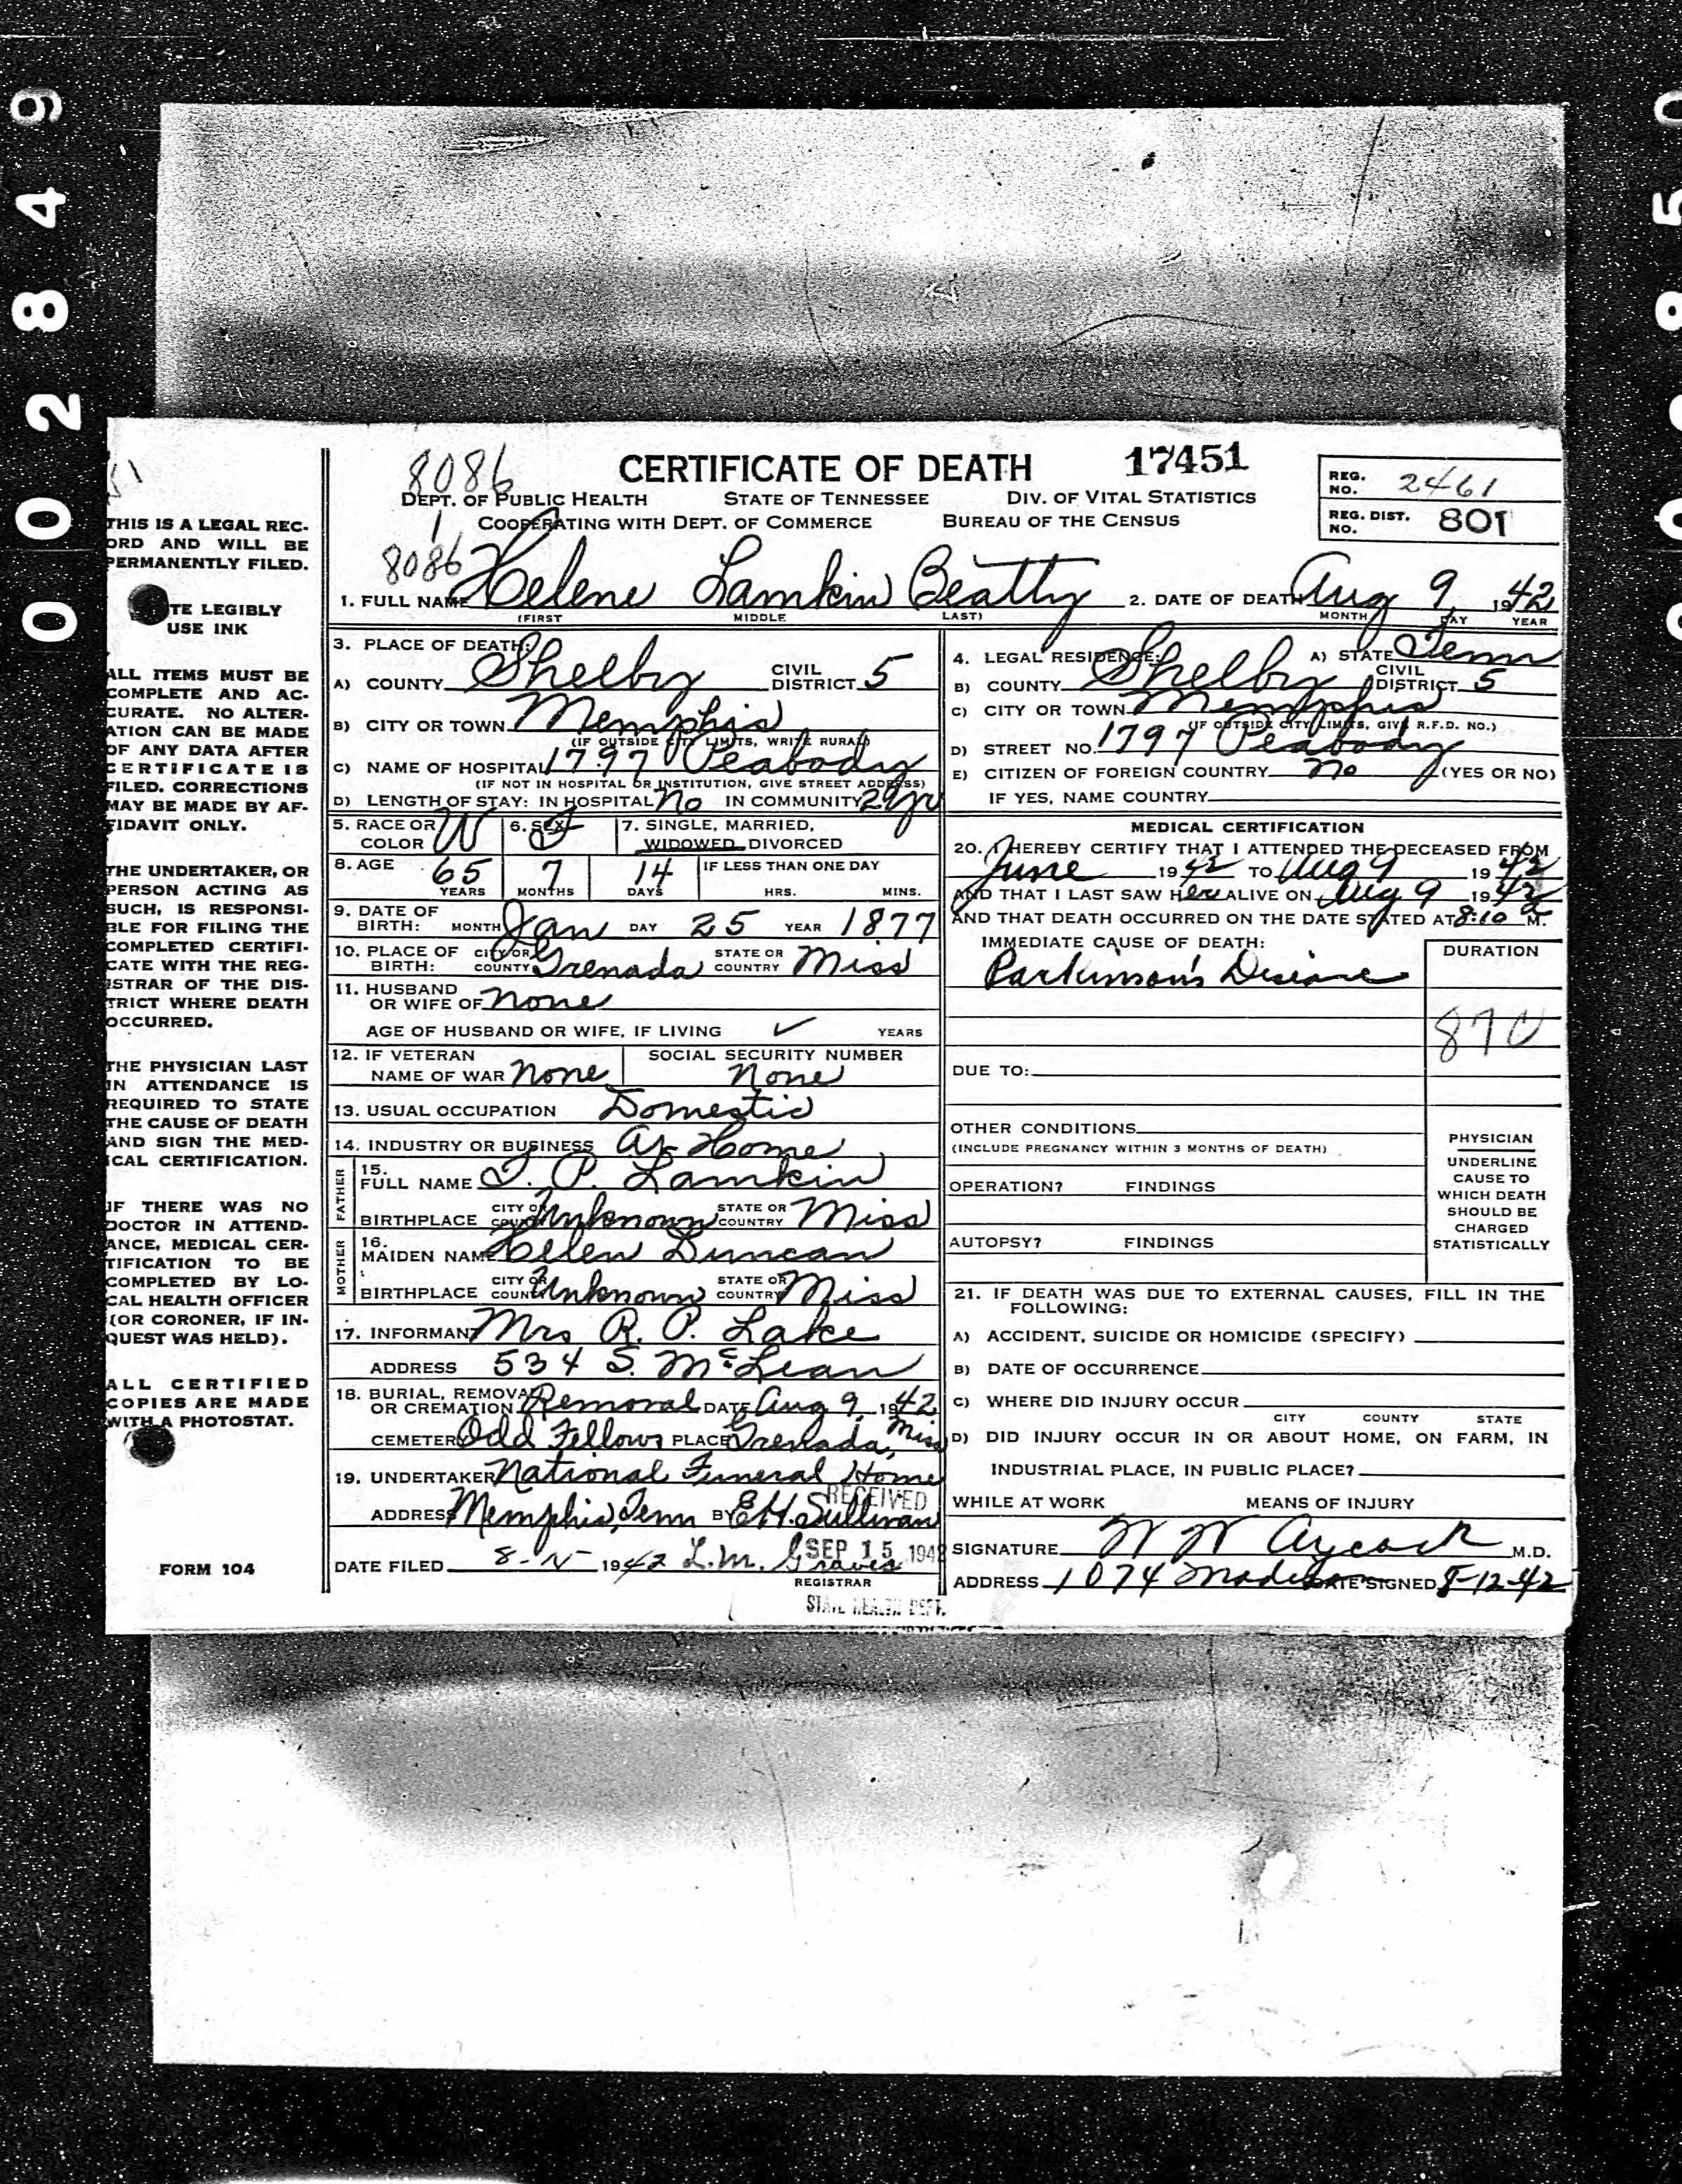 0 0 2 8 4 9
8086
CERTIFICATE OF DEATH 17451
DEPT. OF PUBLIC HEALTH STATE OF TENNESSEE DIV. OF VITAL STATISTICS
1 COOPERATING WITH DEPT. OF COMMERCE BUREAU OF THE CENSUS
REG. NO. 2461
REG. DIST. NO. 801
8086
1. FULL NAME Helene Lamkin Beatty 2. DATE OF DEATH Aug 9, 1942
(FIRST MIDDLE LAST) MONTH DAY YEAR
THIS IS A LEGAL REC-
ORD AND WILL BE
PERMANENTLY FILED.
TE LEGIBLY
USE INK
ALL ITEMS MUST BE
COMPLETE AND AC-
CURATE. NO ALTER-
ATION CAN BE MADE
OF ANY DATA AFTER
CERTIFICATE IS
FILED. CORRECTIONS
MAY BE MADE BY AF-
FIDAVIT ONLY.
THE UNDERTAKER, OR
PERSON ACTING AS
SUCH, IS RESPONSI-
BLE FOR FILING THE
COMPLETED CERTIFI-
CATE WITH THE REG-
ISTRAR OF THE DIS-
TRICT WHERE DEATH
OCCURRED.
THE PHYSICIAN LAST
IN ATTENDANCE IS
REQUIRED TO STATE
THE CAUSE OF DEATH
AND SIGN THE MED-
ICAL CERTIFICATION.
IF THERE WAS NO
DOCTOR IN ATTEND-
ANCE, MEDICAL CER-
TIFICATION TO BE
COMPLETED BY LO-
CAL HEALTH OFFICER
(OR CORONER, IF IN-
QUEST WAS HELD).
ALL CERTIFIED
COPIES ARE MADE
WITH A PHOTOSTAT.
FORM 104
3. PLACE OF DEATH:
A) COUNTY Shelby CIVIL DISTRICT 5
B) CITY OR TOWN Memphis
(IF OUTSIDE CITY LIMITS, WRITE RURAL)
C) NAME OF HOSPITAL 1797 Peabody
(IF NOT IN HOSPITAL OR INSTITUTION, GIVE STREET ADDRESS)
D) LENGTH OF STAY: IN HOSPITAL No IN COMMUNITY 29yr
5. RACE OR COLOR W 6. SEX F 7. SINGLE, MARRIED, WIDOWED, DIVORCED
8. AGE 65 7 14 IF LESS THAN ONE DAY
YEARS MONTHS DAYS HRS. MINS.
9. DATE OF BIRTH: MONTH Jan DAY 25 YEAR 1877
10. PLACE OF BIRTH: CITY OR COUNTY Grenada STATE OR COUNTRY Miss
11. HUSBAND OR WIFE OF None
AGE OF HUSBAND OR WIFE, IF LIVING ✓ YEARS
12. IF VETERAN NAME OF WAR None SOCIAL SECURITY NUMBER None
13. USUAL OCCUPATION Domestic
14. INDUSTRY OR BUSINESS At Home
FATHER 15. FULL NAME T. P. Lamkin
BIRTHPLACE CITY OR COUNTY Unknown STATE OR COUNTRY Miss
MOTHER 16. MAIDEN NAME Helen Duncan
BIRTHPLACE CITY OR COUNTY Unknown STATE OR COUNTRY Miss
17. INFORMANT Mrs R. P. Lake
ADDRESS 534 S. McLean
18. BURIAL, REMOVAL OR CREMATION Removal DATE Aug 9, 1942
CEMETERY Odd Fellows PLACE Grenada, Miss
19. UNDERTAKER National Funeral Home
RECEIVED
ADDRESS Memphis, Tenn BY E H. Sullivan
SEP 15 1942
DATE FILED 1942 L. M. Graves
REGISTRAR
STATE HEALTH DEPT.
4. LEGAL RESIDENCE: A) STATE Tenn
B) COUNTY Shelby CIVIL DISTRICT 5
C) CITY OR TOWN Memphis
(IF OUTSIDE CITY LIMITS, GIVE R.F.D. NO.)
D) STREET NO. 1797 Peabody
E) CITIZEN OF FOREIGN COUNTRY No (YES OR NO)
IF YES, NAME COUNTRY
MEDICAL CERTIFICATION
20. I HEREBY CERTIFY THAT I ATTENDED THE DECEASED FROM
June 1942 TO Aug 9 1942
AND THAT I LAST SAW Her ALIVE ON Aug 9 1942
AND THAT DEATH OCCURRED ON THE DATE STATED AT 8:10 a M.
IMMEDIATE CAUSE OF DEATH: DURATION
Parkinson's Disease
87c
DUE TO:
OTHER CONDITIONS
(INCLUDE PREGNANCY WITHIN 3 MONTHS OF DEATH)
OPERATION? FINDINGS
AUTOPSY? FINDINGS
PHYSICIAN
UNDERLINE
CAUSE TO
WHICH DEATH
SHOULD BE
CHARGED
STATISTICALLY
21. IF DEATH WAS DUE TO EXTERNAL CAUSES, FILL IN THE
FOLLOWING:
A) ACCIDENT, SUICIDE OR HOMICIDE (SPECIFY)
B) DATE OF OCCURRENCE
C) WHERE DID INJURY OCCUR
CITY COUNTY STATE
D) DID INJURY OCCUR IN OR ABOUT HOME, ON FARM, IN
INDUSTRIAL PLACE, IN PUBLIC PLACE?
WHILE AT WORK MEANS OF INJURY
SIGNATURE W W Aycock M.D.
ADDRESS 1074 Madison DATE SIGNED 8-12-42